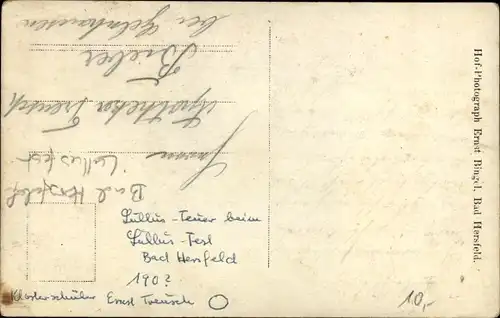 Hof-Photograph Ernst Bingel, Bad Hersfeld.
bei Gelnhausen
Bieber
Apotheker Treusch
Herrn
Lullusfest
Bad Hersfeld
Lullus-Feuer beim
Lullus-Fest
Bad Hersfeld
190?
Klosterschüler Ernst Treusch
10,-